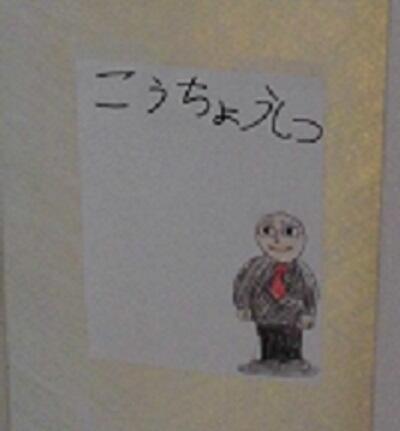 こうちょうしつ